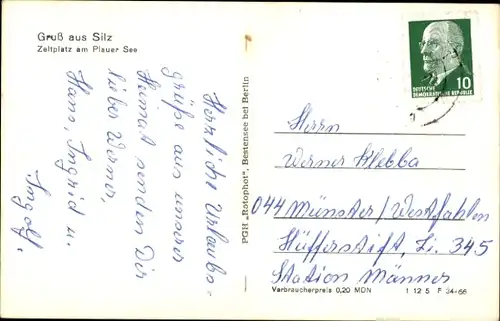 Gruß aus Silz
Zeltplatz am Plauer See
Herzliche Urlaubs-
grüße aus unserer
Heimat senden Dir
lieber Werner,
Hans, Ingrid u.
Ingolf.
PGH „Rotophot", Bestensee bei Berlin
DEUTSCHE
DEMOKRATISCHE REPUBLIK
10
Herrn
Werner Klebba
044 Münster/Westfahlen
Hüfferstift, Zi. 345
Station Männer
Verbraucherpreis 0,20 MDN
1 12 5 F 34-66